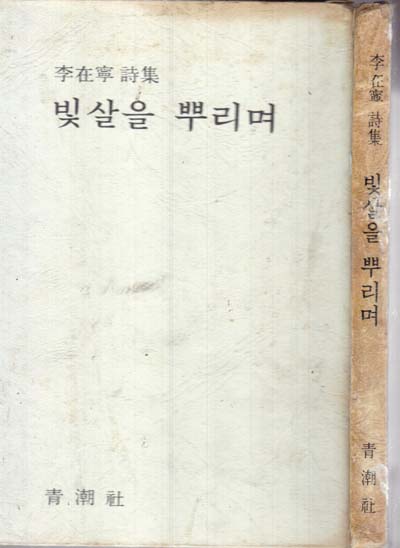 李在寧 詩集
빛살을 뿌리며
青潮社
李在寧 詩集
빛살을 뿌리며
青潮社